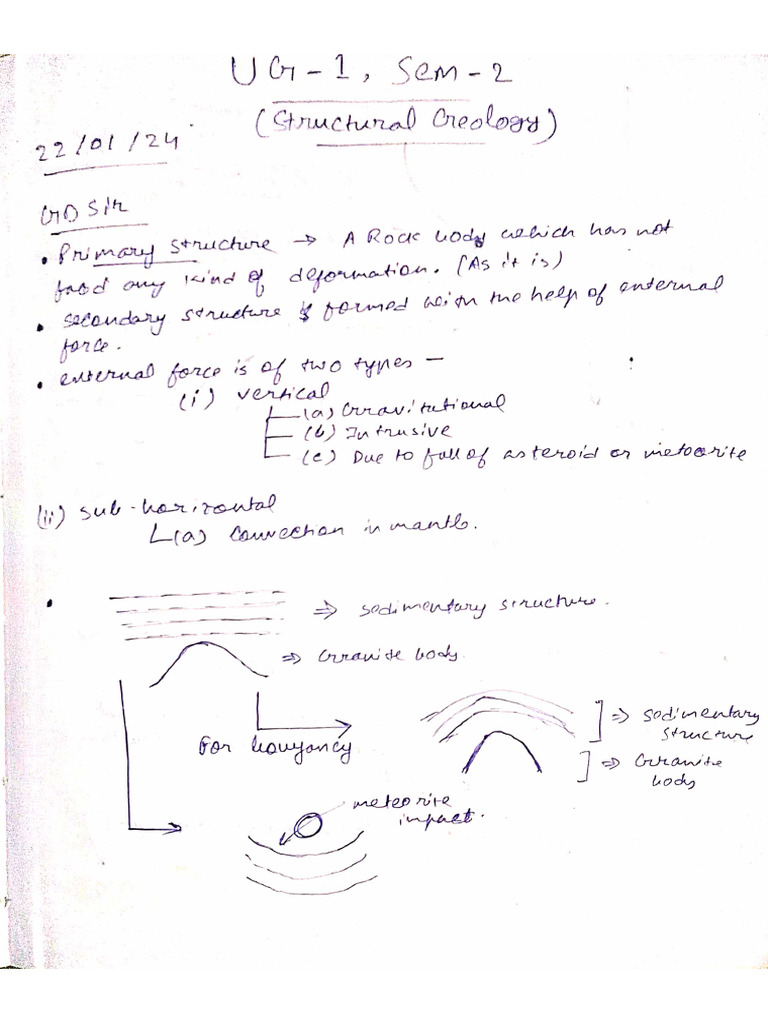 UG-1, Sem-2
(Structural Geology)
22/01/24
GD Sir
• Primary structure → A Rock body which has not
faced any kind of deformation. (As it is)
• secondary structure is formed with the help of external
force.
• external force is of two types —
(i) vertical
(a) Gravitational
(b) Intrusive
(c) Due to fall of asteroid or meteorite
(ii) sub-horizontal
(a) convection in mantle.
• ⇒ sedimentary structure.
⇒ Granite body.
For bouyancy
⇒ sedimentary
structure
⇒ Granite
body
meteorite
impact.